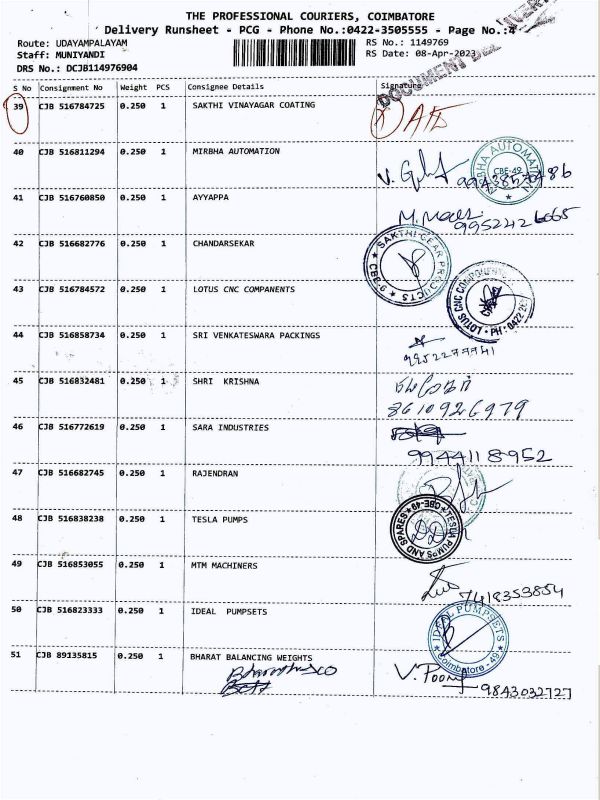 THE PROFESSIONAL COURIERS, COIMBATORE
Delivery Runsheet - PCG - Phone No.:0422-3505555 - Page No.:4
Route: UDAYAMPALAYAM
RS No.: 1149769
Staff: MUNIYANDI
RS Date: 08-Apr-2023
DRS No.: DCJB114976904
DOCUMENT DEL
S No Consignment No Weight PCS Consignee Details Signature
39 CJB 516784725 0.250 1 SAKTHI VINAYAGAR COATING
40 CJB 516811294 0.250 1 MIRBHA AUTOMATION
MIRBHA AUTOMATION
CBE-49
41 CJB 516760850 0.250 1 AYYAPPA
42 CJB 516682776 0.250 1 CHANDARSEKAR
SAKTHI GEAR PRODUCTS
CBE-6
43 CJB 516784572 1 LOTUS CNC COMPANENTS
LOTUS CNC COMPONENTS
PH: 0422
44 CJB 516858734 0.250 1 SRI VENKATESWARA PACKINGS
45 CJB 516832481 0.250 1 SHRI KRISHNA
8610926979
46 CJB 516772619 0.250 1 SARA INDUSTRIES
9944118952
47 CJB 516682745 0.250 1 RAJENDRAN
48 CJB 516838238 0.250 1 TESLA PUMPS
TESLA PUMPS AND SPARES
CBE-49
49 CJB 516853055 0.250 1 MTM MACHINERS
7418353854
50 CJB 516823333 0.250 1 IDEAL PUMPSETS
IDEAL PUMPSETS
Coimbatore - 49
51 CJB 89135815 0.250 1 BHARAT BALANCING WEIGHTS
9843032727